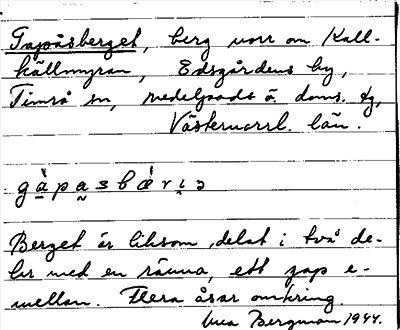 Gapåsberget, berg norr om Kall-
källmyran, Edsgårdens by,
Timrå sn, Medelpads ö. doms. tg,
Västernorrl. län.
gàpasbærɩə
Berget är liksom delat i två de-
lar med en ränna, ett gap e-
mellan. Flera åsar omkring.
Bergman 1944.